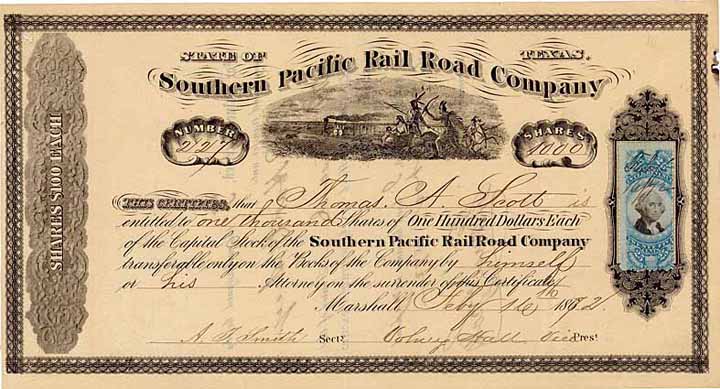 STATE OF TEXAS.
Southern Pacific Rail Road Company
NUMBER SHARES
227 1000
SHARES $100 EACH
THIS CERTIFIES, that Thomas A. Scott is
entitled to one thousand Shares of One Hundred Dollars Each
of the Capital Stock of the Southern Pacific Rail Road Company
transferable only on the Books of the Company by himself
or his Attorney on the surrender of this Certificate
Marshall Feby 16th 1872
A. F. Smith Secty. Volney Hall Vice Prest